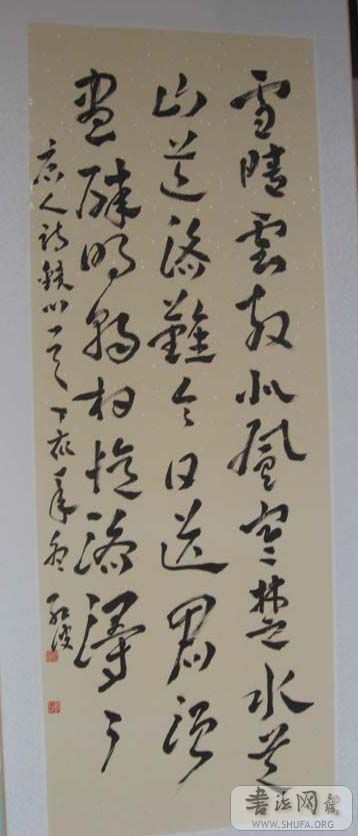 雪晴雲散北風寒楚水吳
山道路難今日送君須
盡醉明朝相憶路漫々
唐人詩 丁亥
書法网
WWW.SHUFA.ORG